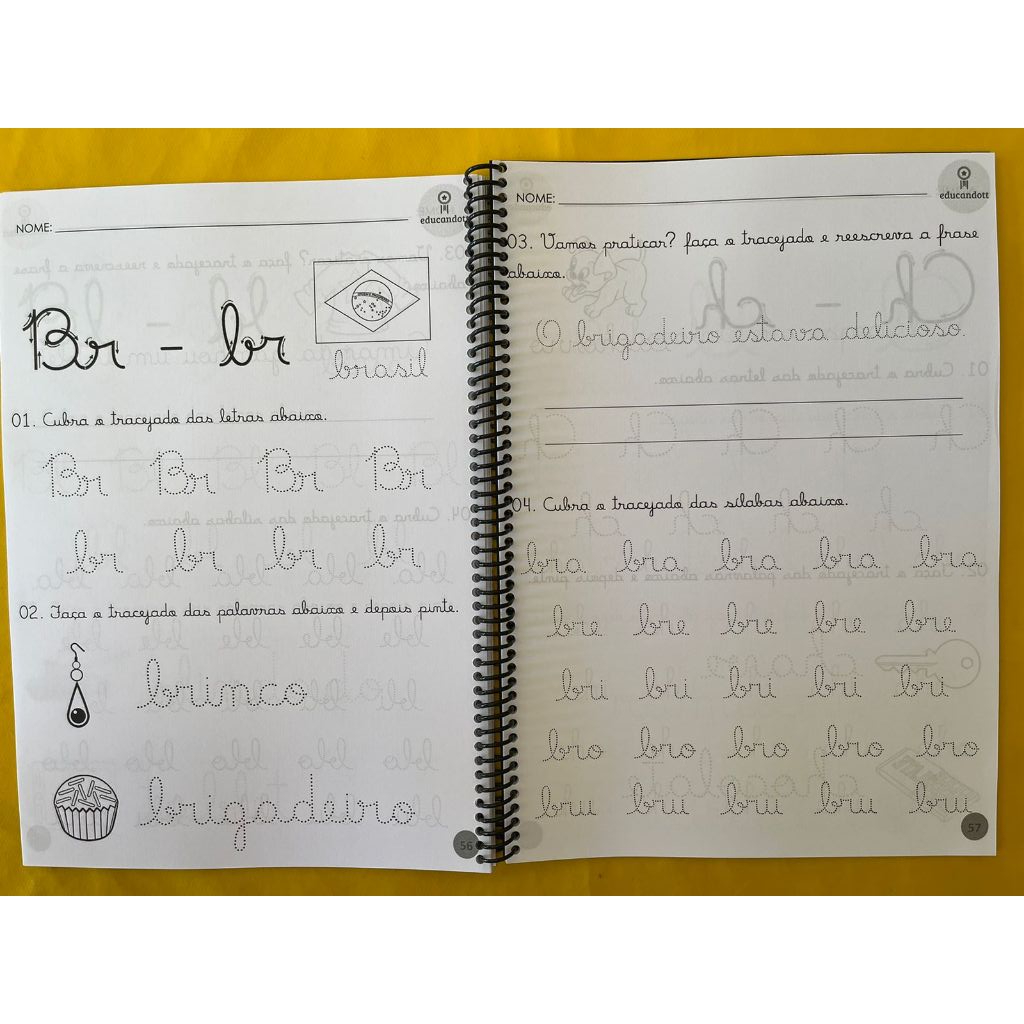 NOME:
educandott
Br - br
brasil
01. Cubra o tracejado das letras abaixo.
Br Br Br Br
br br br br
02. Faça o tracejado das palavras abaixo e depois pinte.
brinco
brigadeiro
56
NOME:
educandott
03. Vamos praticar? faça o tracejado e reescreva a frase
abaixo.
O brigadeiro estava delicioso.
04. Cubra o tracejado das sílabas abaixo.
bra bra bra bra bra
bre bre bre bre bre
bri bri bri bri bri
bro bro bro bro bro
bru bru bru bru bru
57